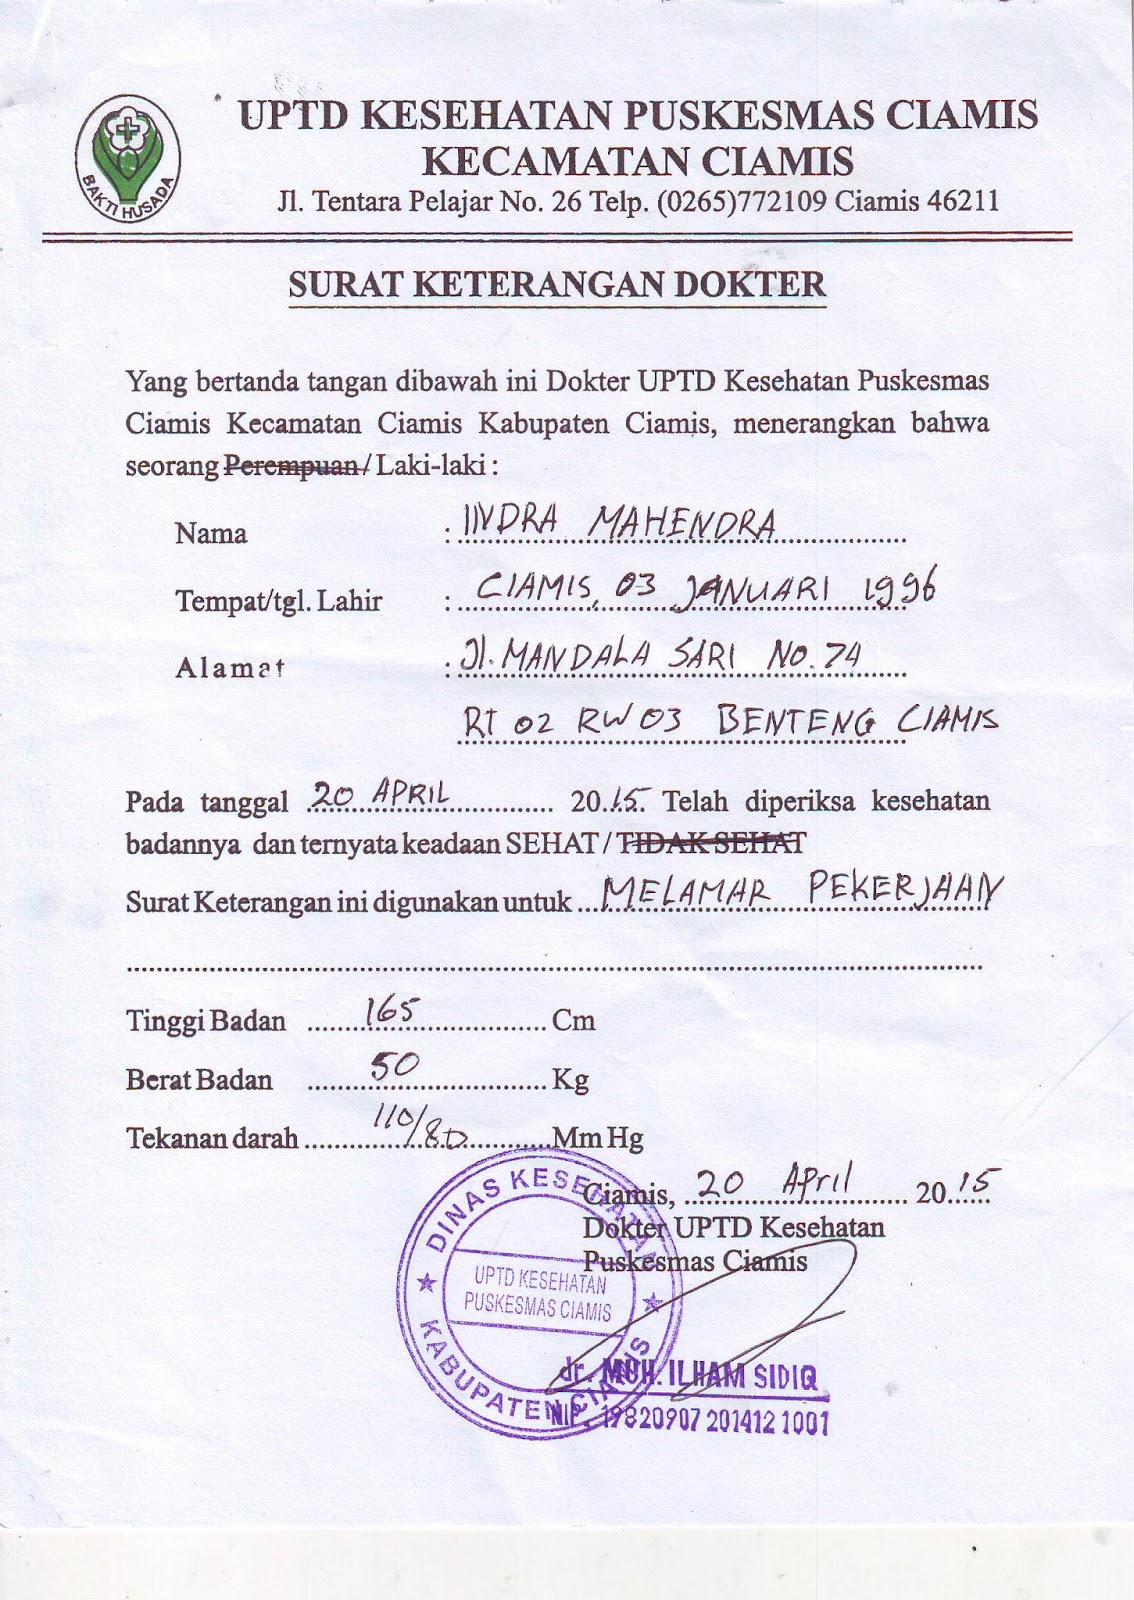 BAKTI HUSADA
UPTD KESEHATAN PUSKESMAS CIAMIS
KECAMATAN CIAMIS
Jl. Tentara Pelajar No. 26 Telp. (0265)772109 Ciamis 46211
SURAT KETERANGAN DOKTER
Yang bertanda tangan dibawah ini Dokter UPTD Kesehatan Puskesmas
Ciamis Kecamatan Ciamis Kabupaten Ciamis, menerangkan bahwa
seorang Perempuan / Laki-laki :
Nama : INDRA MAHENDRA
Tempat/tgl. Lahir : CIAMIS, 03 JANUARI 1996
Alamat : Jl. MANDALA SARI NO. 74
RT 02 RW 03 BENTENG CIAMIS
Pada tanggal 20 APRIL 2015 Telah diperiksa kesehatan
badannya dan ternyata keadaan SEHAT / TIDAK SEHAT
Surat Keterangan ini digunakan untuk MELAMAR PEKERJAAN
Tinggi Badan 165 Cm
Berat Badan 50 Kg
Tekanan darah 110/80 Mm Hg
Ciamis, 20 April 2015
Dokter UPTD Kesehatan
Puskesmas Ciamis
DINAS KESEHATAN
UPTD KESEHATAN
PUSKESMAS CIAMIS
KABUPATEN CIAMIS
dr. MUH. ILHAM SIDIQ
NIP. 19820907 201412 1001